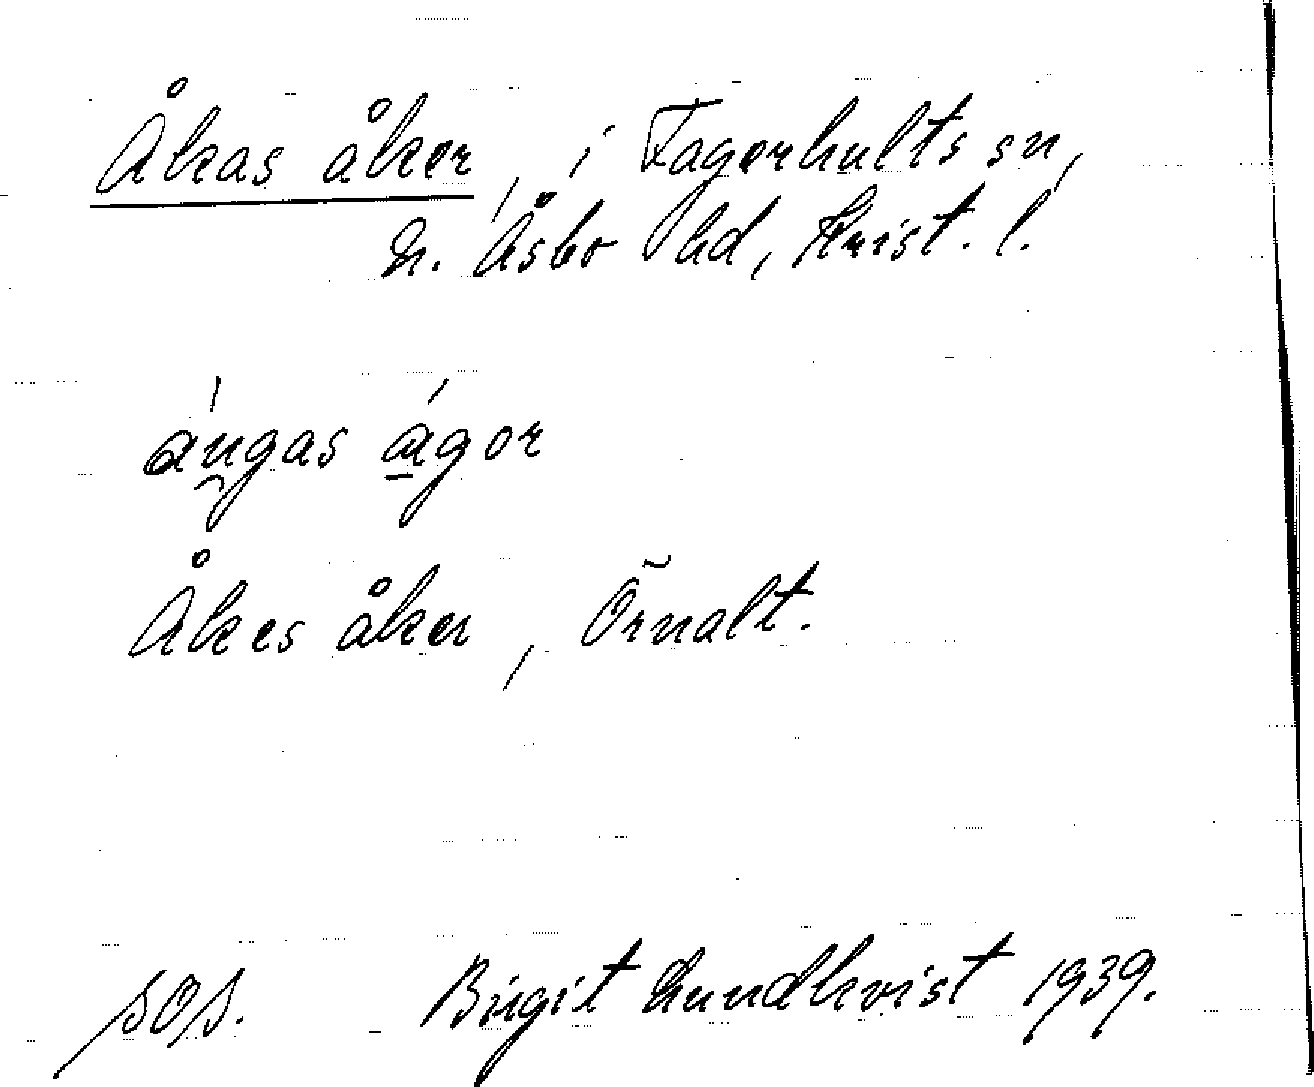 Åkas åker, i Fagerhults sn,
N. Åsbo hd, Krist. l.
ángas ágor
Åkes åker, Örnalt.
SOS. Birgit Lundkvist 1939.